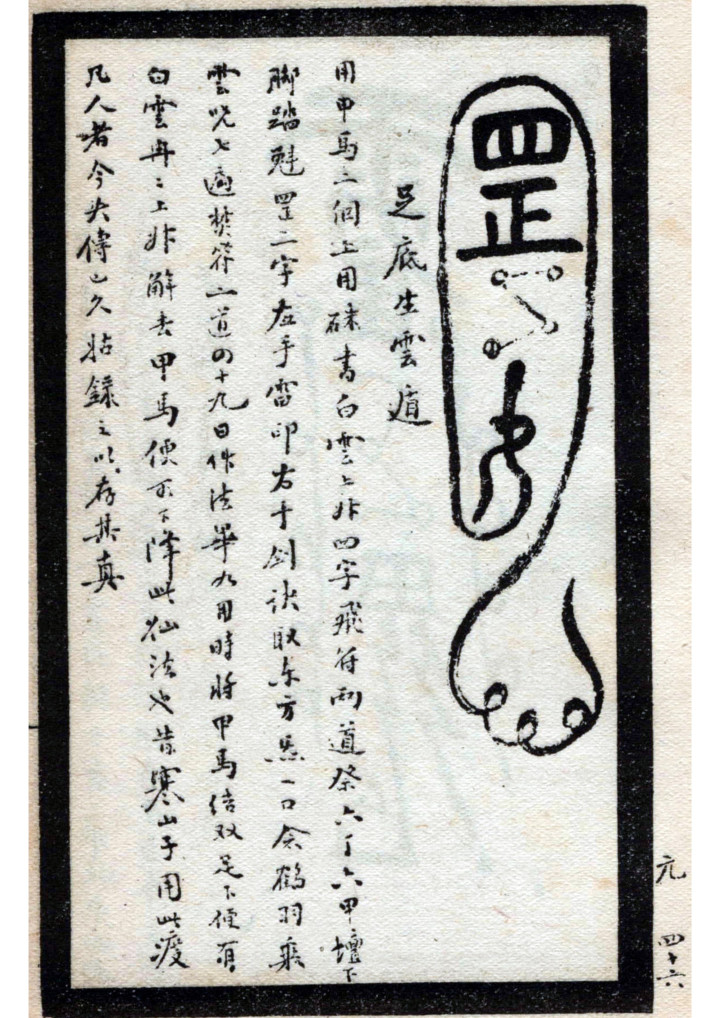 罡
足底生雲遁
用甲馬二個上用硃書白雲上升四字飛符兩道祭六丁六甲壇下
脚踏魁罡二字左手雷印右手劍訣取东方炁一口念鶴羽乘
雲咒七遍焚符二道四十九日作法畢凡用時將甲馬结双足下便有
白雲冉冉上升解去甲馬便可下降此仙法也昔寒山子用此渡
凡人者今失傳久帖錄之以存其真
元 四十六